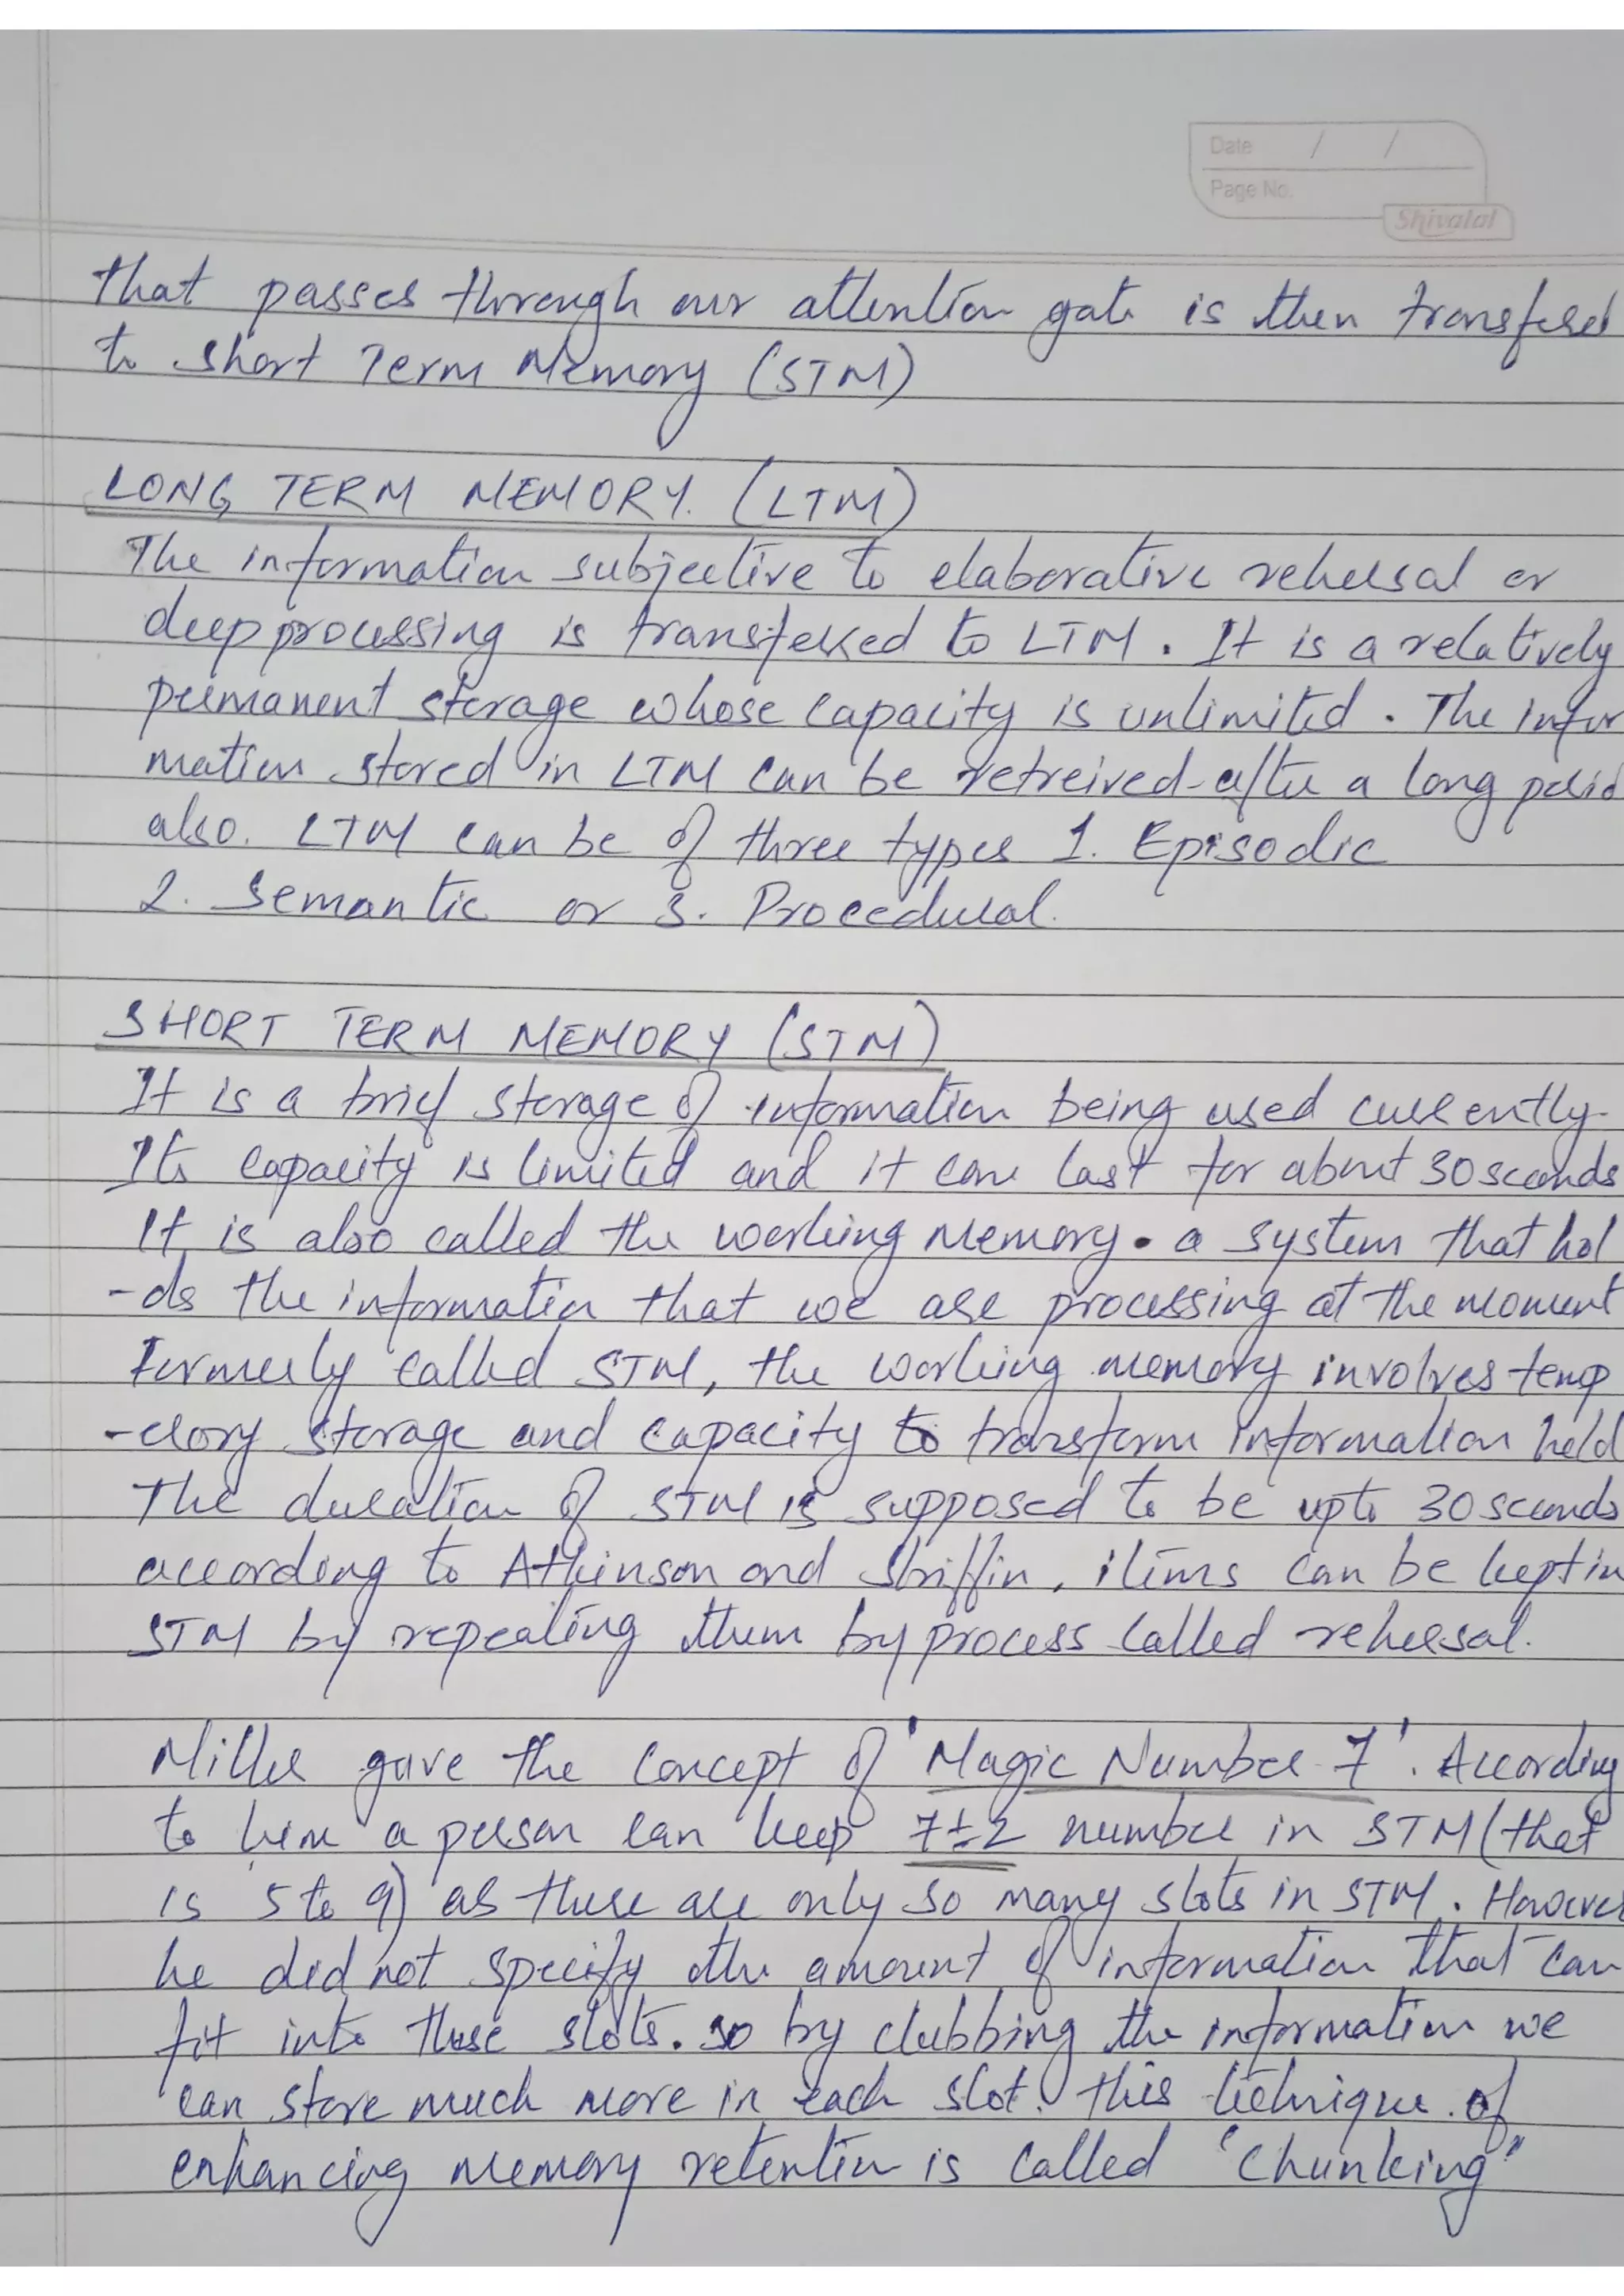 Date / /
Page No.
Shivalal
that passes through our attention gate is then transfered
to short Term Memory (STM)
LONG TERM MEMORY. (LTM)
The information subjective to elaborative rehersal or
deep processing is transferred to LTM. It is a relatively
permanent storage whose capacity is unlimited. The infor
mation stored in LTM can be retreived after a long period
also. LTM can be of three types 1. Episodic
2. Semantic or 3. Procedural.
SHORT TERM MEMORY (STM)
It is a brief storage of information being used currently.
Its capacity is limited and it can last for about 30 seconds
It is also called the working memory. a system that hol
-ds the information that we are processing at the moment
Formerly called STM, the working memory involves temp
-orory storage and capacity to transform information held
The duration of STM is supposed to be upto 30 seconds
according to Atkinson and Shriffin, items can be kept in
STM by repeating them by process called rehersal.
Miller gave the concept of 'Magic Number 7'. According
to him a person can keep 7±2 number in STM (that
is 5 to 9) as there are only so many slots in STM. However
he did not specify the amount of information that can
fit into these slots. so by clubbing the information we
can store much more in each slot. this technique of
enhancing memory retention is called "Chunking"